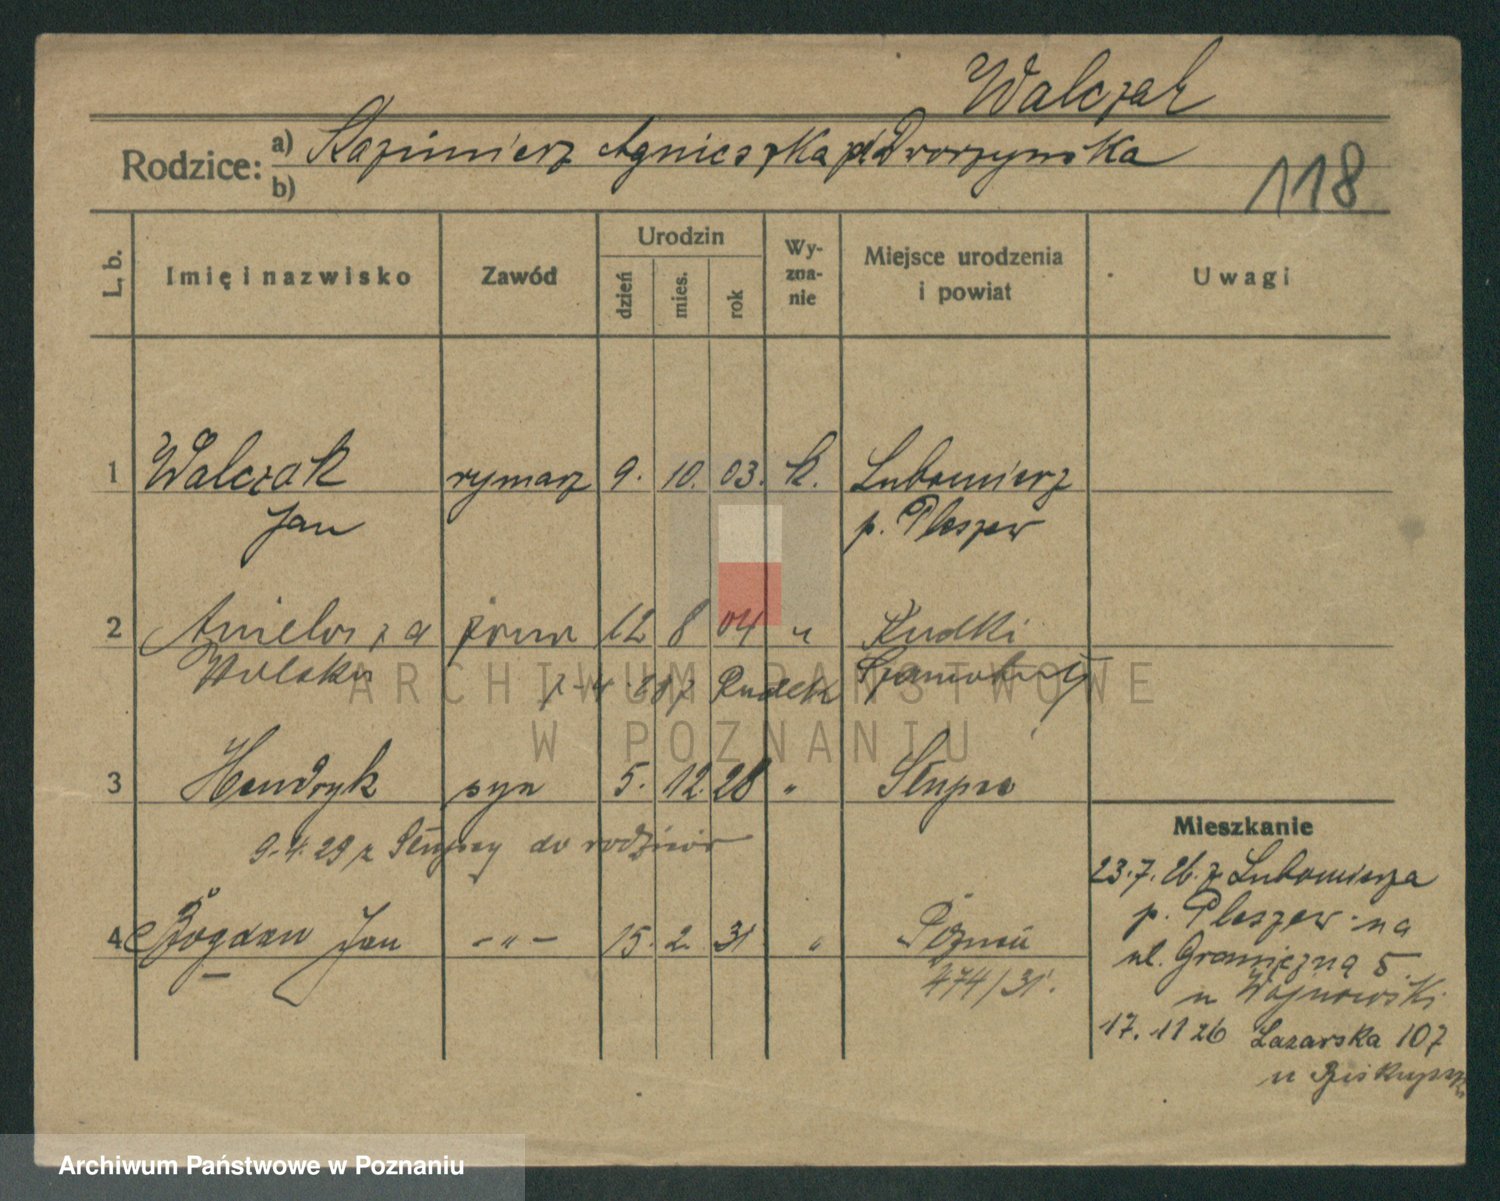 Walczak
Rodzice: a) Kazimierz Agnieszka Dworzyńska
b)
118
L. b. Imię i nazwisko Zawód Urodzin dzień mies. rok Wyznanie Miejsce urodzenia i powiat Uwagi
1 Walczak rymarz 9. 10. 03. k. Lubomierz
Jan p. Pleszew
2 Aniela z d żona 12 8 04 " Rudki
Wolska Szamotuły
3 Hendryk syn 5. 12. 28 " Słupia
9.4.29 z Słupcy do rodziców
4 Bogdan Jan -"- 15. 2. 31 " Poznań
474/31.
Mieszkanie
23.7.26. z Lubomierza
p. Pleszew na
ul. Graniczną 5.
u Wojnowski
17. 11 26 Łazarska 107
u
ARCHIWUM PAŃSTWOWE
W POZNANIU
Archiwum Państwowe w Poznaniu